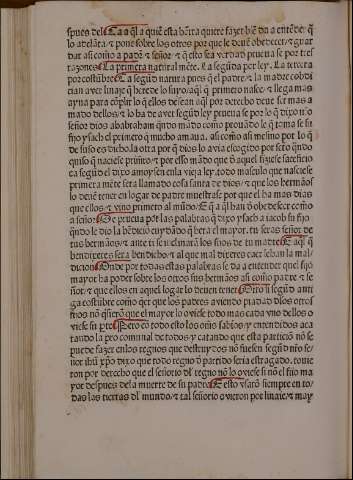 spues del Ca aq̃l a quiẽ esta hõrra quiere fazer biẽ da a entẽder q̃
lo adelãta ⁊ pone sobre los otros por que le deuẽ obedecer ⁊ guar
dar asi como a padre ⁊ señor ⁊ q̃ esto sea verdad prueua se por tres
razones La primera natural mẽte. La segũda por ley. La tercera
por costũbre Ca segũd natura pues q̃l padre ⁊ la madre cobdi
cian aver linaje q̃ herede lo suyo aq̃l q̃ primero nasce ⁊ llega mas
ayna para cõplir lo q̃ ellos desean aq̃l por derecho deue ser mas a
mado dellos ⁊ lo ha de aver segũd ley prueua se por lo q̃ dixo nr̃o
señor dios a abraham qñdo mãdo como prouãdo le q̃ toma se su
fijo ysach el primero q̃ mucho amaua. asi como asi mesmo por lo q̃
de suso es dicho la otra por q̃ dios lo avia escogido por sctõ qñdo
quiso q̃ naciese primero ⁊ por esso mãdo que de aquel fiziese sacreficio
ca segũd el dixo a moysen en la vieja ley. todo masculo que naciese
primera mẽte seria llamado cosa santa de dios ⁊ que los hermanos
lo deuẽ tener en logar de padre muestra se por que el ha mas dias
que ellos ⁊ vino primero al mũdo E q̃ a el han de obedescer como
a señor Se prueua por las palabras q̃ dixo ysach a iacob su fijo
qñdo le dio la bẽdicio cuydãdo q̃ hera el mayor. tu seras señor de
tus hermanos ⁊ ante ti se inclinarã los fijos de tu madre E aq̃l q̃
bendixeres sera bendicho ⁊ al que mal dixeres caer le han la mal/
dicion Onde por todas estas palabras se da a entender quel fijo
mayor ha poder sobre los otros sus hermanos asi como padre ⁊ se
ñor ⁊ que ellos en aquel logar lo deuen tener Otro si segũd anti
gua costũbre como q̃er que los padres aviendo piadad dlos otros
fijos nõ q̃sierõ que el mayor lo oviese todo mas cada vno dellos o
viese su pte Pero cõ todo esto los oms sabios ⁊ entendidos aca
tando la pro comunal de todos ⁊ catando que esta particiõ nõ se
puede fazer en los regnos que destruydos nõ fuesen segũd nr̃o se/
ñor ihũ xp̃o dixo que todo regno partido seria estragado. touie
ron por derecho que el señorio dl regno nõ lo oviese si nõ el fijo ma
yor despues dela muerte de su padre E esto vsarõ siempre en to/
das las tierras dl mundo ⁊ tal señorio ovieron por linaje ⁊ may